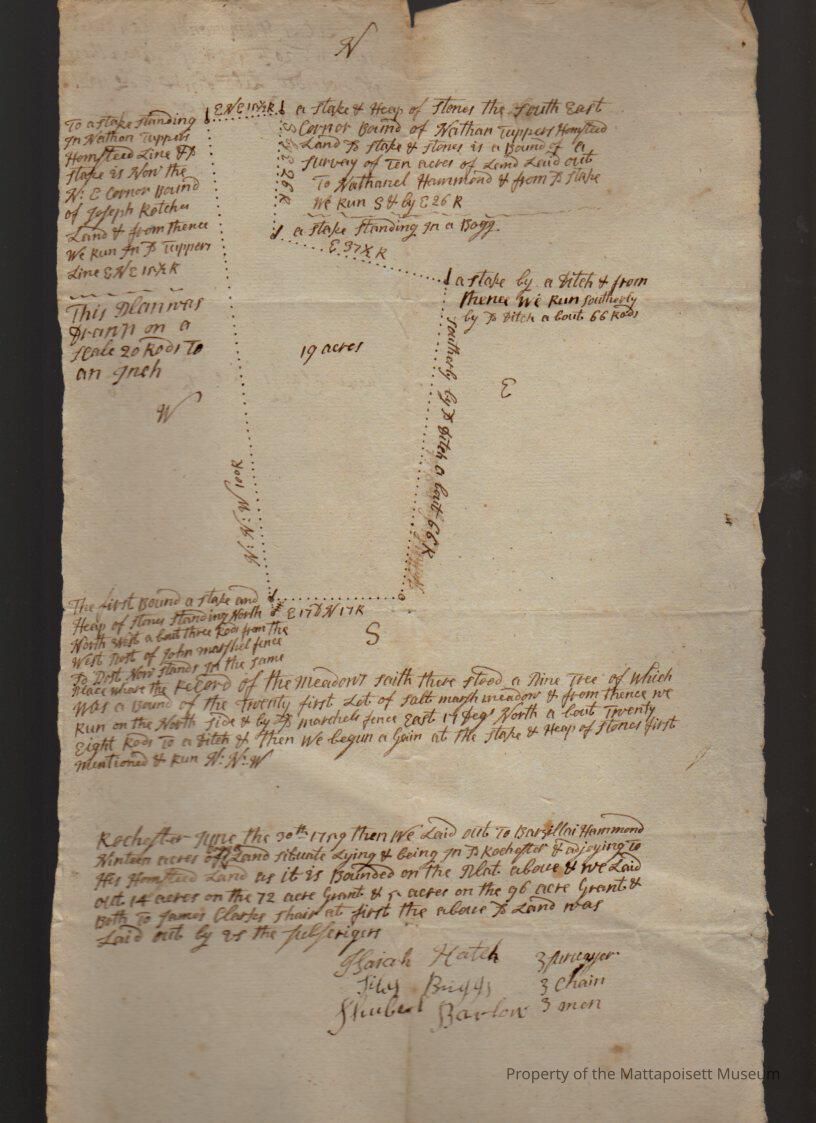 N
E N E 15½ R
To a stake standing
In Nathan Tuppers
Homsteed Line & sd
stake is Now the
N: E Cornor Bound
of Joseph Rotchs
Land & from thence
We Run In sd Tuppers
Line E N E 15½ R
a stake & Heap of stones the South East
Cornor Bound of Nathan Tuppers Homsteed
Land sd stake & stones is a Bound of a
survey of Ten acres of Land Laid out
To Nathanel Hammond & from sd stake
We Run S & by E 26 R
S & by E 26 R
a stake standing In a Bogg.
E 37½ R
a stake by a Ditch & from
thence We Run southerly
by sd Ditch a bout 66 Rods
This Plan was
Drawn on a
scale 20 Rods To
an Inch
19 acres
W
E
southerly by sd Ditch a bout 66 R
N: N: W 100 R
The first Bound a stake and
Heap of stones standing North
North West a bout three Rods from the
West Post of John marshel fence
sd Post Now stands In the same
Place where the Record of the meadows saith there stood a Pine Tree of Which
Was a Bound of the Twenty first Lot of salt marsh meadow & from thence we
Run on the North side & by sd marshels fence East 17 Degs North a bout Twenty
Eight Rods To a Ditch & then We begun a Gain at the stake & Heap of stones first
mentioned & Run N: N: W
E 17 D N 17 R
S
Rochester June the 30th 1759 then We Laid out To Barzillai Hammond
Ninteen acres of Land situate Lying & being In sd Rochester & adjoying to
His Homsteed Land as it is Bounded on the Plat above & We Laid
out 14 acres on the 72 acre Grant & 5 acres on the 96 acre Grant &
Both To James Clarks shair at first the above sd Land was
Laid out by us the subscrigers
Isaiah Hatch } surveyer
Silas Briggs } Chain
Shubel Barlow } men
Property of the Mattapoisett Museum